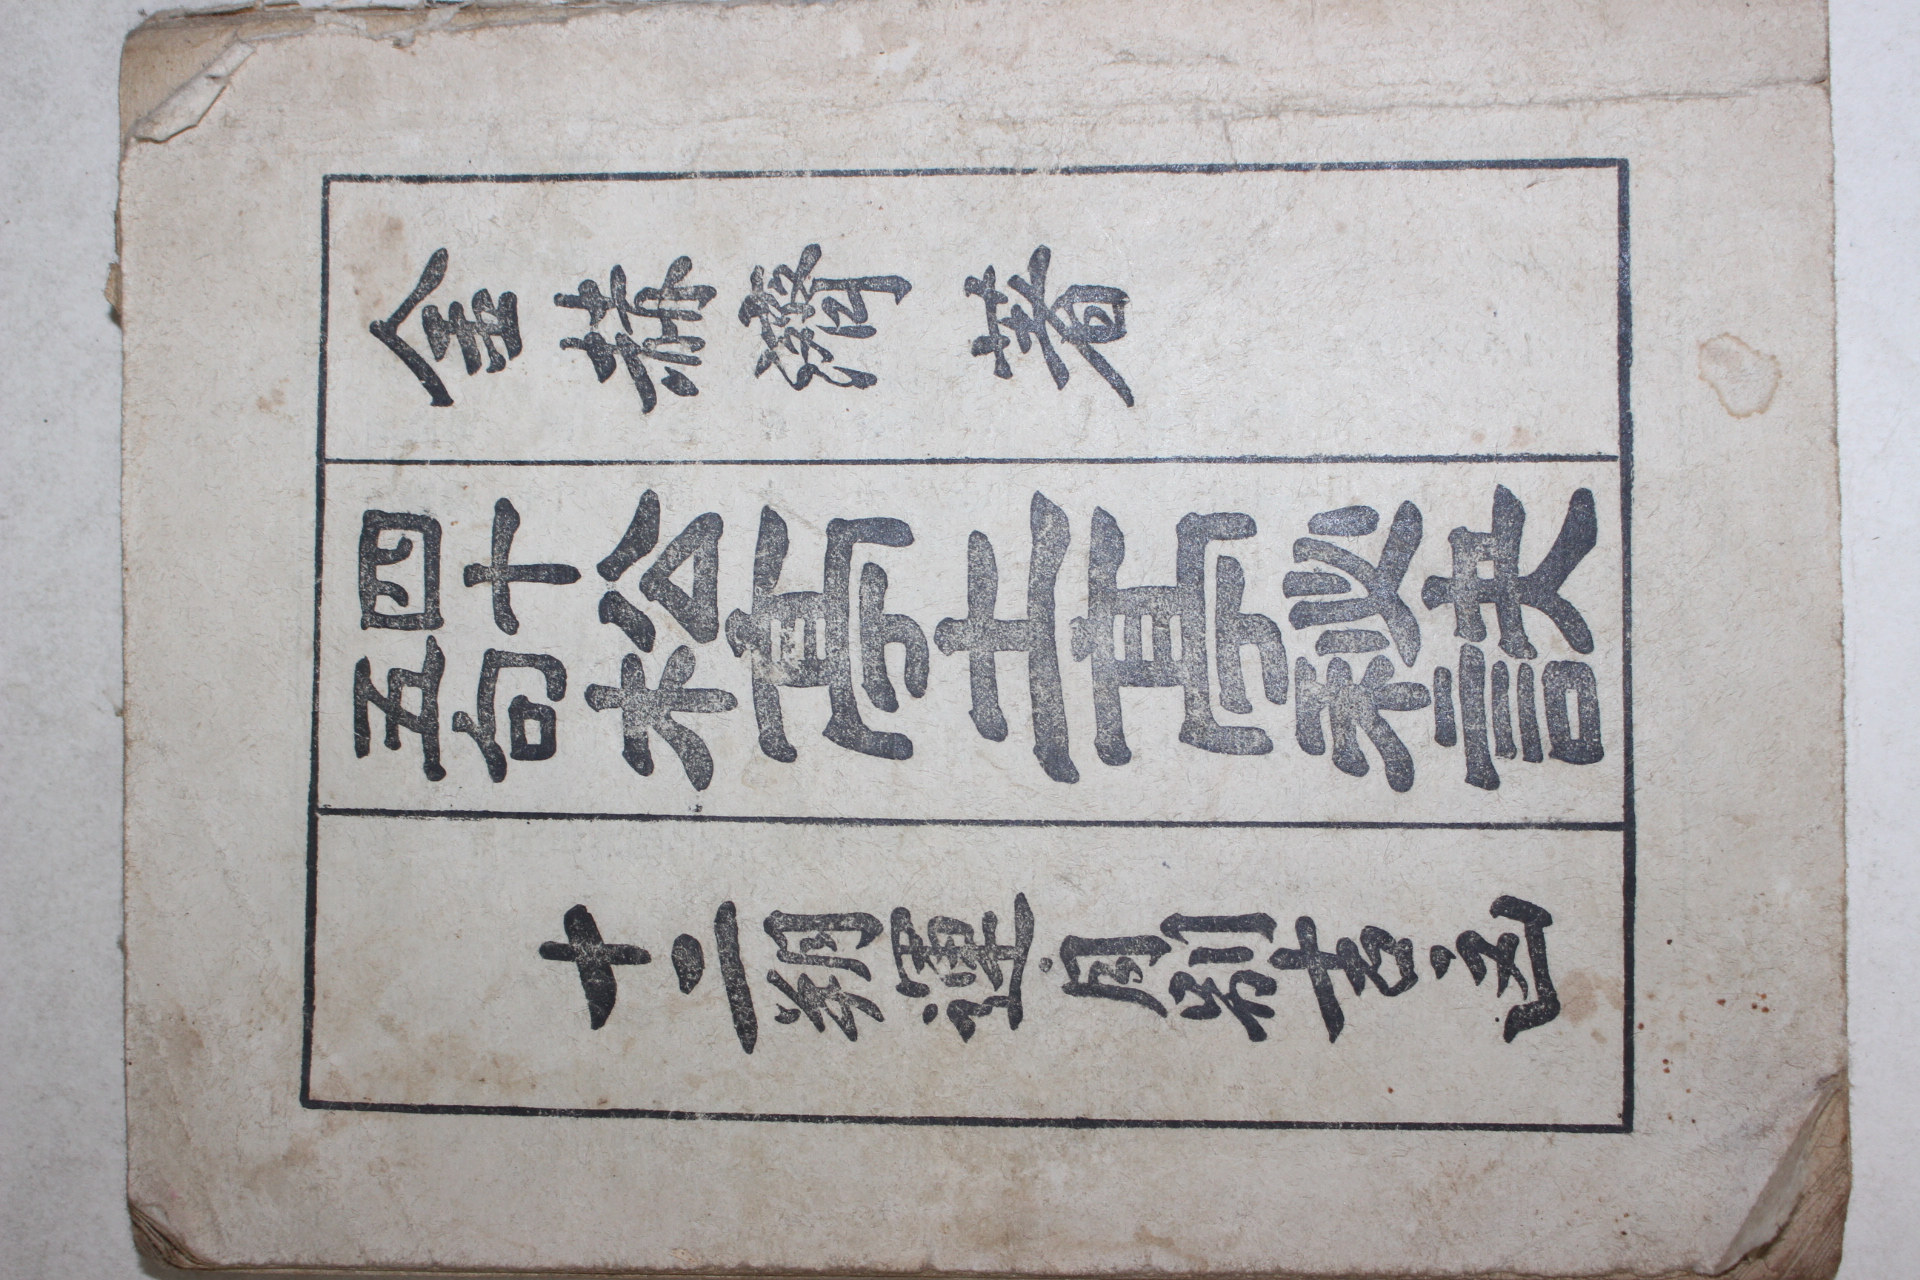 金赫濟 著
四十五句松亭土亭秘訣
十二朔運月別吉凶